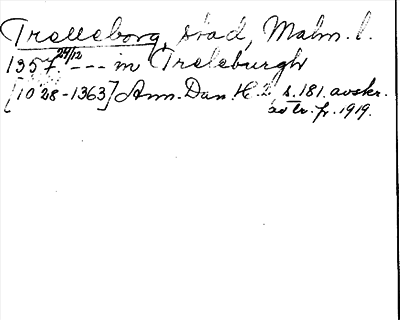 Trelleborg, stad, Malm. l.
1357 24/12 --- in Treleburgh
[1028-1363] Ann. Dan. H. 2, s. 181. avskr.
avtr. fr. 1919.